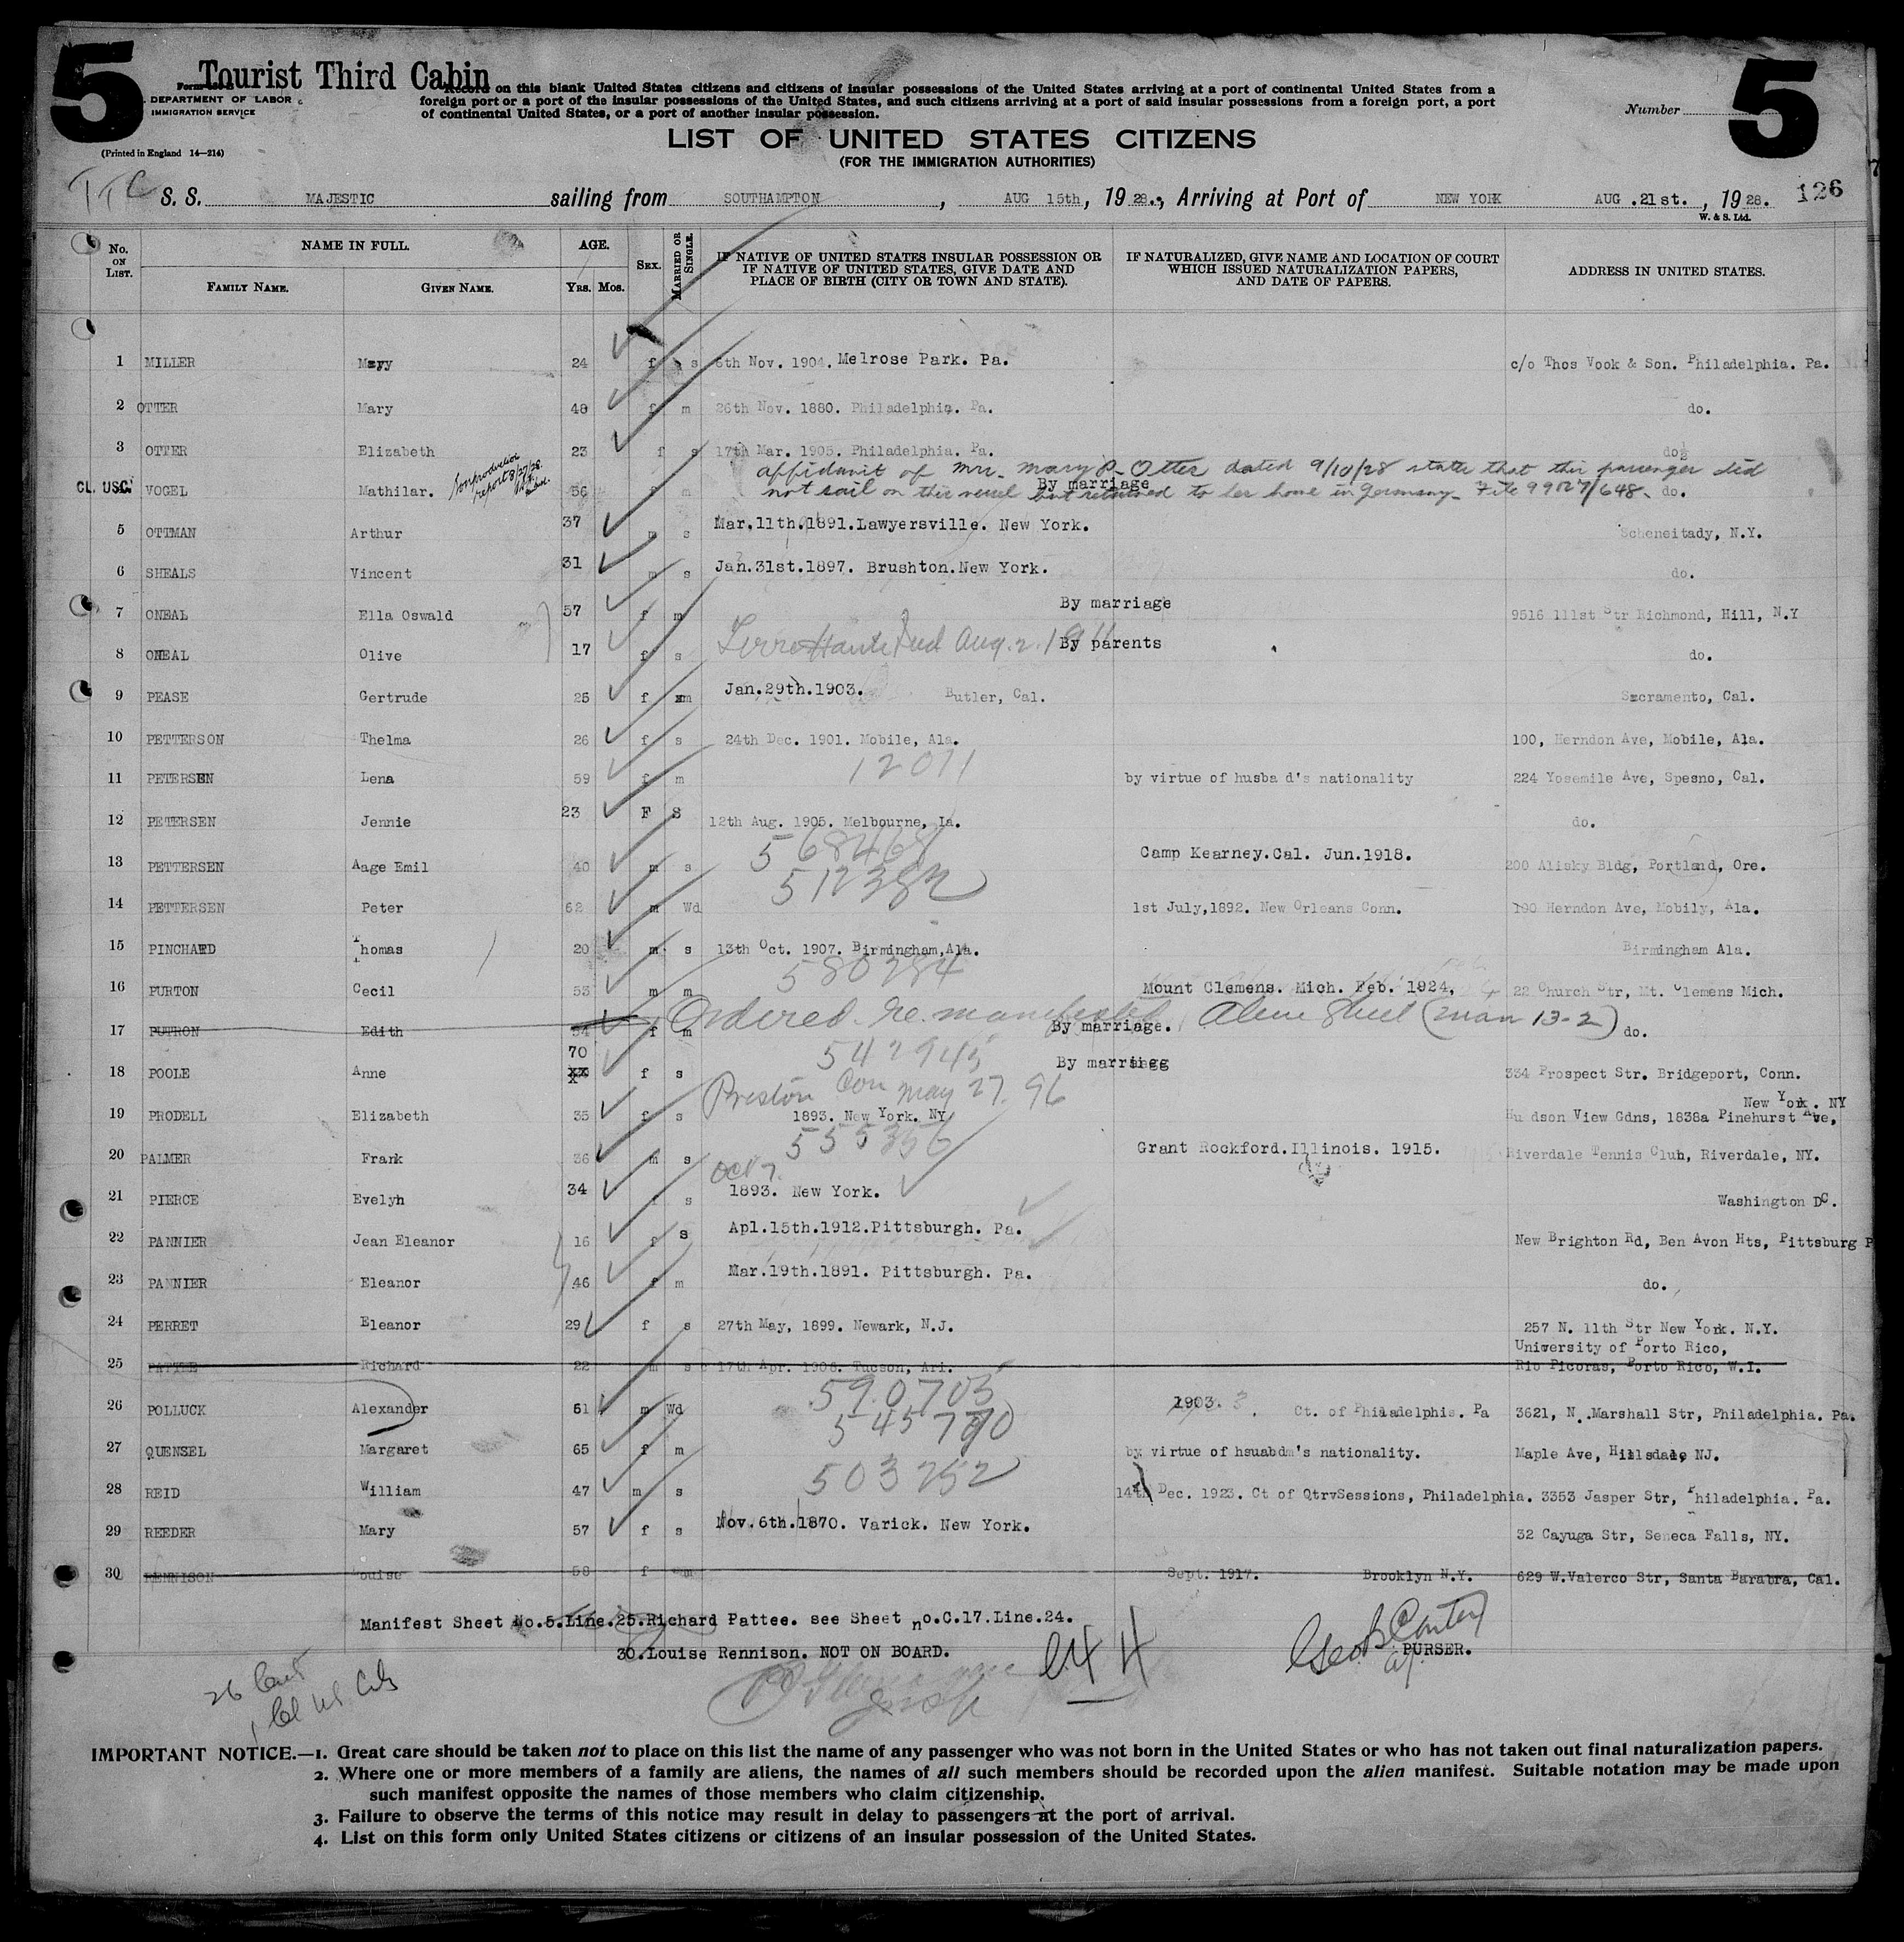 5 Tourist Third Cabin 5
Record on this blank United States citizens and citizens of insular possessions of the United States arriving at a port of continental United States from a
DEPARTMENT OF LABOR
foreign port or a port of the insular possessions of the United States, and such citizens arriving at a port of said insular possessions from a foreign port, a port
IMMIGRATION SERVICE
of continental United States, or a port of another insular possession.
Number
LIST OF UNITED STATES CITIZENS
(Printed in England 14—214)
(FOR THE IMMIGRATION AUTHORITIES)
TTC S. S. MAJESTIC sailing from SOUTHAMPTON, AUG 15th, 1928., Arriving at Port of NEW YORK AUG .21st., 1928. 126
W. & S. Ltd.
No. ON LIST. NAME IN FULL. FAMILY NAME. GIVEN NAME. AGE. YRS. MOS. SEX. MARRIED OR SINGLE. IF NATIVE OF UNITED STATES INSULAR POSSESSION OR IF NATIVE OF UNITED STATES, GIVE DATE AND PLACE OF BIRTH (CITY OR TOWN AND STATE). IF NATURALIZED, GIVE NAME AND LOCATION OF COURT WHICH ISSUED NATURALIZATION PAPERS, AND DATE OF PAPERS. ADDRESS IN UNITED STATES.
1 MILLER Mayy 24 f s 6th Nov. 1904. Melrose Park. Pa. c/o Thos Vook & Son. Philadelphia. Pa.
2 OTTER Mary 48 f m 26th Nov. 1880. Philadelphia. Pa. do.
3 OTTER Elizabeth 23 f s 17th Mar. 1905. Philadelphia. Pa. do
affidavit of Mrs. Mary P. Otter dated 9/10/28 state that this passenger did
CL. USC. VOGEL Mathilar. Nonproduction report 8/27/28 56 f m By marriage do.
not sail on this vessel but returned to her home in Germany. File 99127/648.
5 OTTMAN Arthur 37 m s Mar.11th.1891.Lawyersville. New York. Scheneitady, N.Y.
6 SHEALS Vincent 31 m s Jan.31st.1897. Brushton.New York. do.
7 ONEAL Ella Oswald 57 f m By marriage 9516 111st Str Richmond, Hill, N.Y
8 ONEAL Olive 17 f s Terre Haute Ind Aug. 2. 1911 By parents do.
9 PEASE Gertrude 25 f m Jan.29th.1903. Butler, Cal. Sacramento, Cal.
10 PETTERSON Thelma 26 f s 24th Dec. 1901. Mobile, Ala. 100, Herndon Ave, Mobile, Ala.
12011
11 PETERSEN Lena 59 f m by virtue of husba d's nationality 224 Yosemile Ave, Spesno, Cal.
12 PETERSEN Jennie 23 F S 12th Aug. 1905. Melbourne, Ia. do.
568468
13 PETTERSEN Aage Emil 40 m s Camp Kearney.Cal. Jun.1918. 200 Alisky Bldg, Portland, Ore.
512382
14 PETTERSEN Peter 62 m Wd 1st July,1892. New Orleans Conn. 190 Herndon Ave, Mobily, Ala.
15 PINCHARD Thomas 20 m s 13th Oct. 1907. Birmingham,Ala. Birmingham Ala.
580284
16 PURTON Cecil 53 m m Mount Clemens. Mich. Feb. 1924, 22 Church Str, Mt. Clemens Mich.
Ordered re. manifested Alien Sheet (man 13-2)
17 PUTRON Edith 54 f m By marriage. do.
542945
18 POOLE Anne 70 f s By marriagg 334 Prospect Str. Bridgeport, Conn.
Preston Con May 27. 96
New York. NY
19 PRODELL Elizabeth 35 f s 1893. New York. NY Hudson View Gdns, 1838a Pinehurst Ave,
555356
20 PALMER Frank 36 m s Grant Rockford.Illinois. 1915. Riverdale Tennis Club, Riverdale, NY.
Oct 7.
21 PIERCE Evelyn 34 f s 1893. New York. Washington DC.
22 PANNIER Jean Eleanor 16 f s Apl.15th.1912.Pittsburgh. Pa. New Brighton Rd, Ben Avon Hts, Pittsburg P
23 PANNIER Eleanor 46 f m Mar.19th.1891. Pittsburgh. Pa. do.
24 PERRET Eleanor 29 f s 27th May, 1899. Newark, N.J. 257 N. 11th Str New York. N.Y.
University of Porto Rico,
25 PATTEE Richard 22 m s 17th Apr. 1906. Tucson, Ari. Rio Picoras, Porto Rico, W.I.
590705
26 POLLUCK Alexander 51 m Wd 1903. Ct. of Philadelphia. Pa 3621, N. Marshall Str, Philadelphia. Pa.
27 QUENSEL Margaret 65 f m by virtue of hsuabdm's nationality. Maple Ave, Hillsdale, NJ.
503252
28 REID William 47 m s 14th Dec. 1923. Ct of QtrvSessions, Philadelphia. 3353 Jasper Str, Philadelphia. Pa.
29 REEDER Mary 57 f s Nov.6th.1870. Varick. New York. 32 Cayuga Str, Seneca Falls, NY.
30 RENNISON Louise 58 f m Sept. 1917. Brooklyn N.Y. 629 W.Valerco Str, Santa Barabra, Cal.
Manifest Sheet No.5.Line.25.Richard Pattee. see Sheet no.C.17.Line.24.
30.Louise Rennison. NOT ON BOARD.
PURSER.
IMPORTANT NOTICE.—1. Great care should be taken not to place on this list the name of any passenger who was not born in the United States or who has not taken out final naturalization papers.
2. Where one or more members of a family are aliens, the names of all such members should be recorded upon the alien manifest. Suitable notation may be made upon
such manifest opposite the names of those members who claim citizenship.
3. Failure to observe the terms of this notice may result in delay to passengers at the port of arrival.
4. List on this form only United States citizens or citizens of an insular possession of the United States.